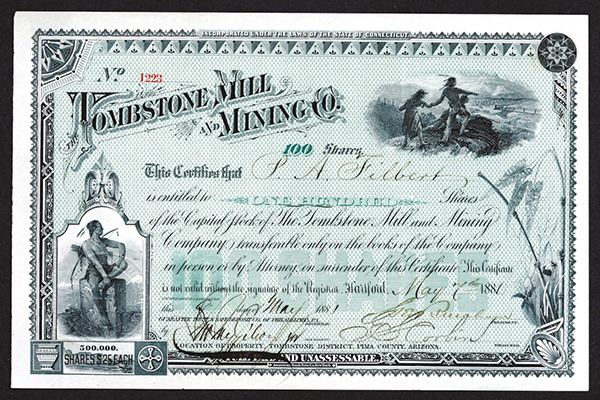 INCORPORATED UNDER THE LAWS OF THE STATE OF CONNECTICUT.
No 1223
THE TOMBSTONE MILL
AND MINING CO.
100 Shares
This Certifies that P. A. Filbert
is entitled to ONE HUNDRED Shares
of the Capital Stock of The Tombstone Mill and Mining
Company, transferable only on the books of the Company
in person or by Attorney, on surrender of this Certificate. This Certificate
is not valid without the signature of the Register. Hartford, May 7th 1881
this May 1881
PHILADELPHIA, PA.
by
500,000.
SHARES $25 EACH
AND UNASSESSABLE.
LOCATION OF PROPERTY, TOMBSTONE DISTRICT, PIMA COUNTY, ARIZONA.